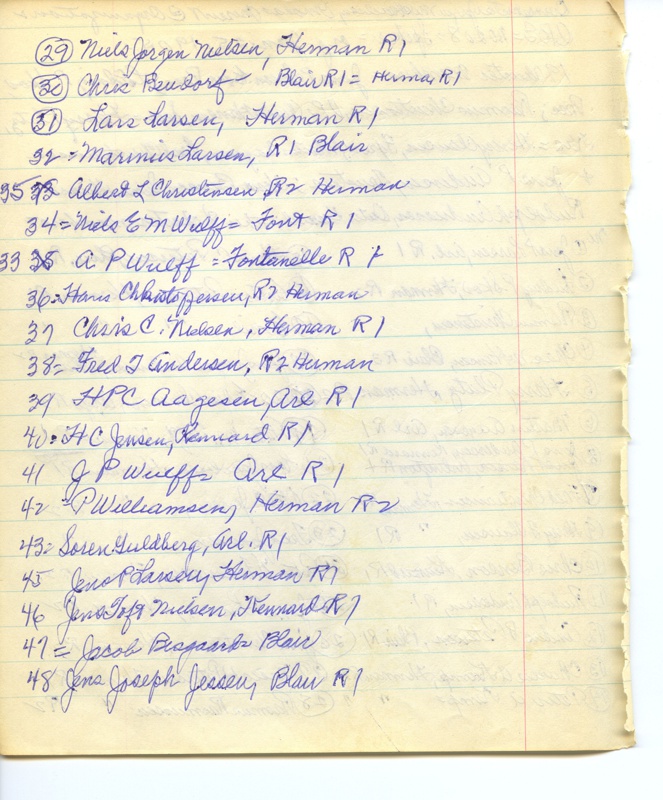 (29) Niels Jorgen Nielsen, Herman R1
(30) Chris Bendorf Blair R1 = Herman R1
(31) Lars Larsen, Herman R1
32 = Marinus Larsen, R1 Blair
35 Albert L Christensen R2 Herman
34 = Niels E M Wulff = Font R1
33 A P Wulff = Fontanelle R 1
36 = Hans Christoffersen, R2 Herman
37 Chris C. Nielsen, Herman R1
38 = Fred T Andersen, R2 Herman
39 H P C Aagesen, Arl R1
40 = H C Jensen, Kennard R1
41 J P Wulff = Arl R1
42 = P Williamsen, Herman R2
43 = Soren Guldberg, Arl. R1
45 Jens P Larsen, Herman R1
46 Jens Toft Nielsen, Kennard R1
47 = Jacob Bisgaard = Blair
48 Jens Joseph Jessen, Blair R1